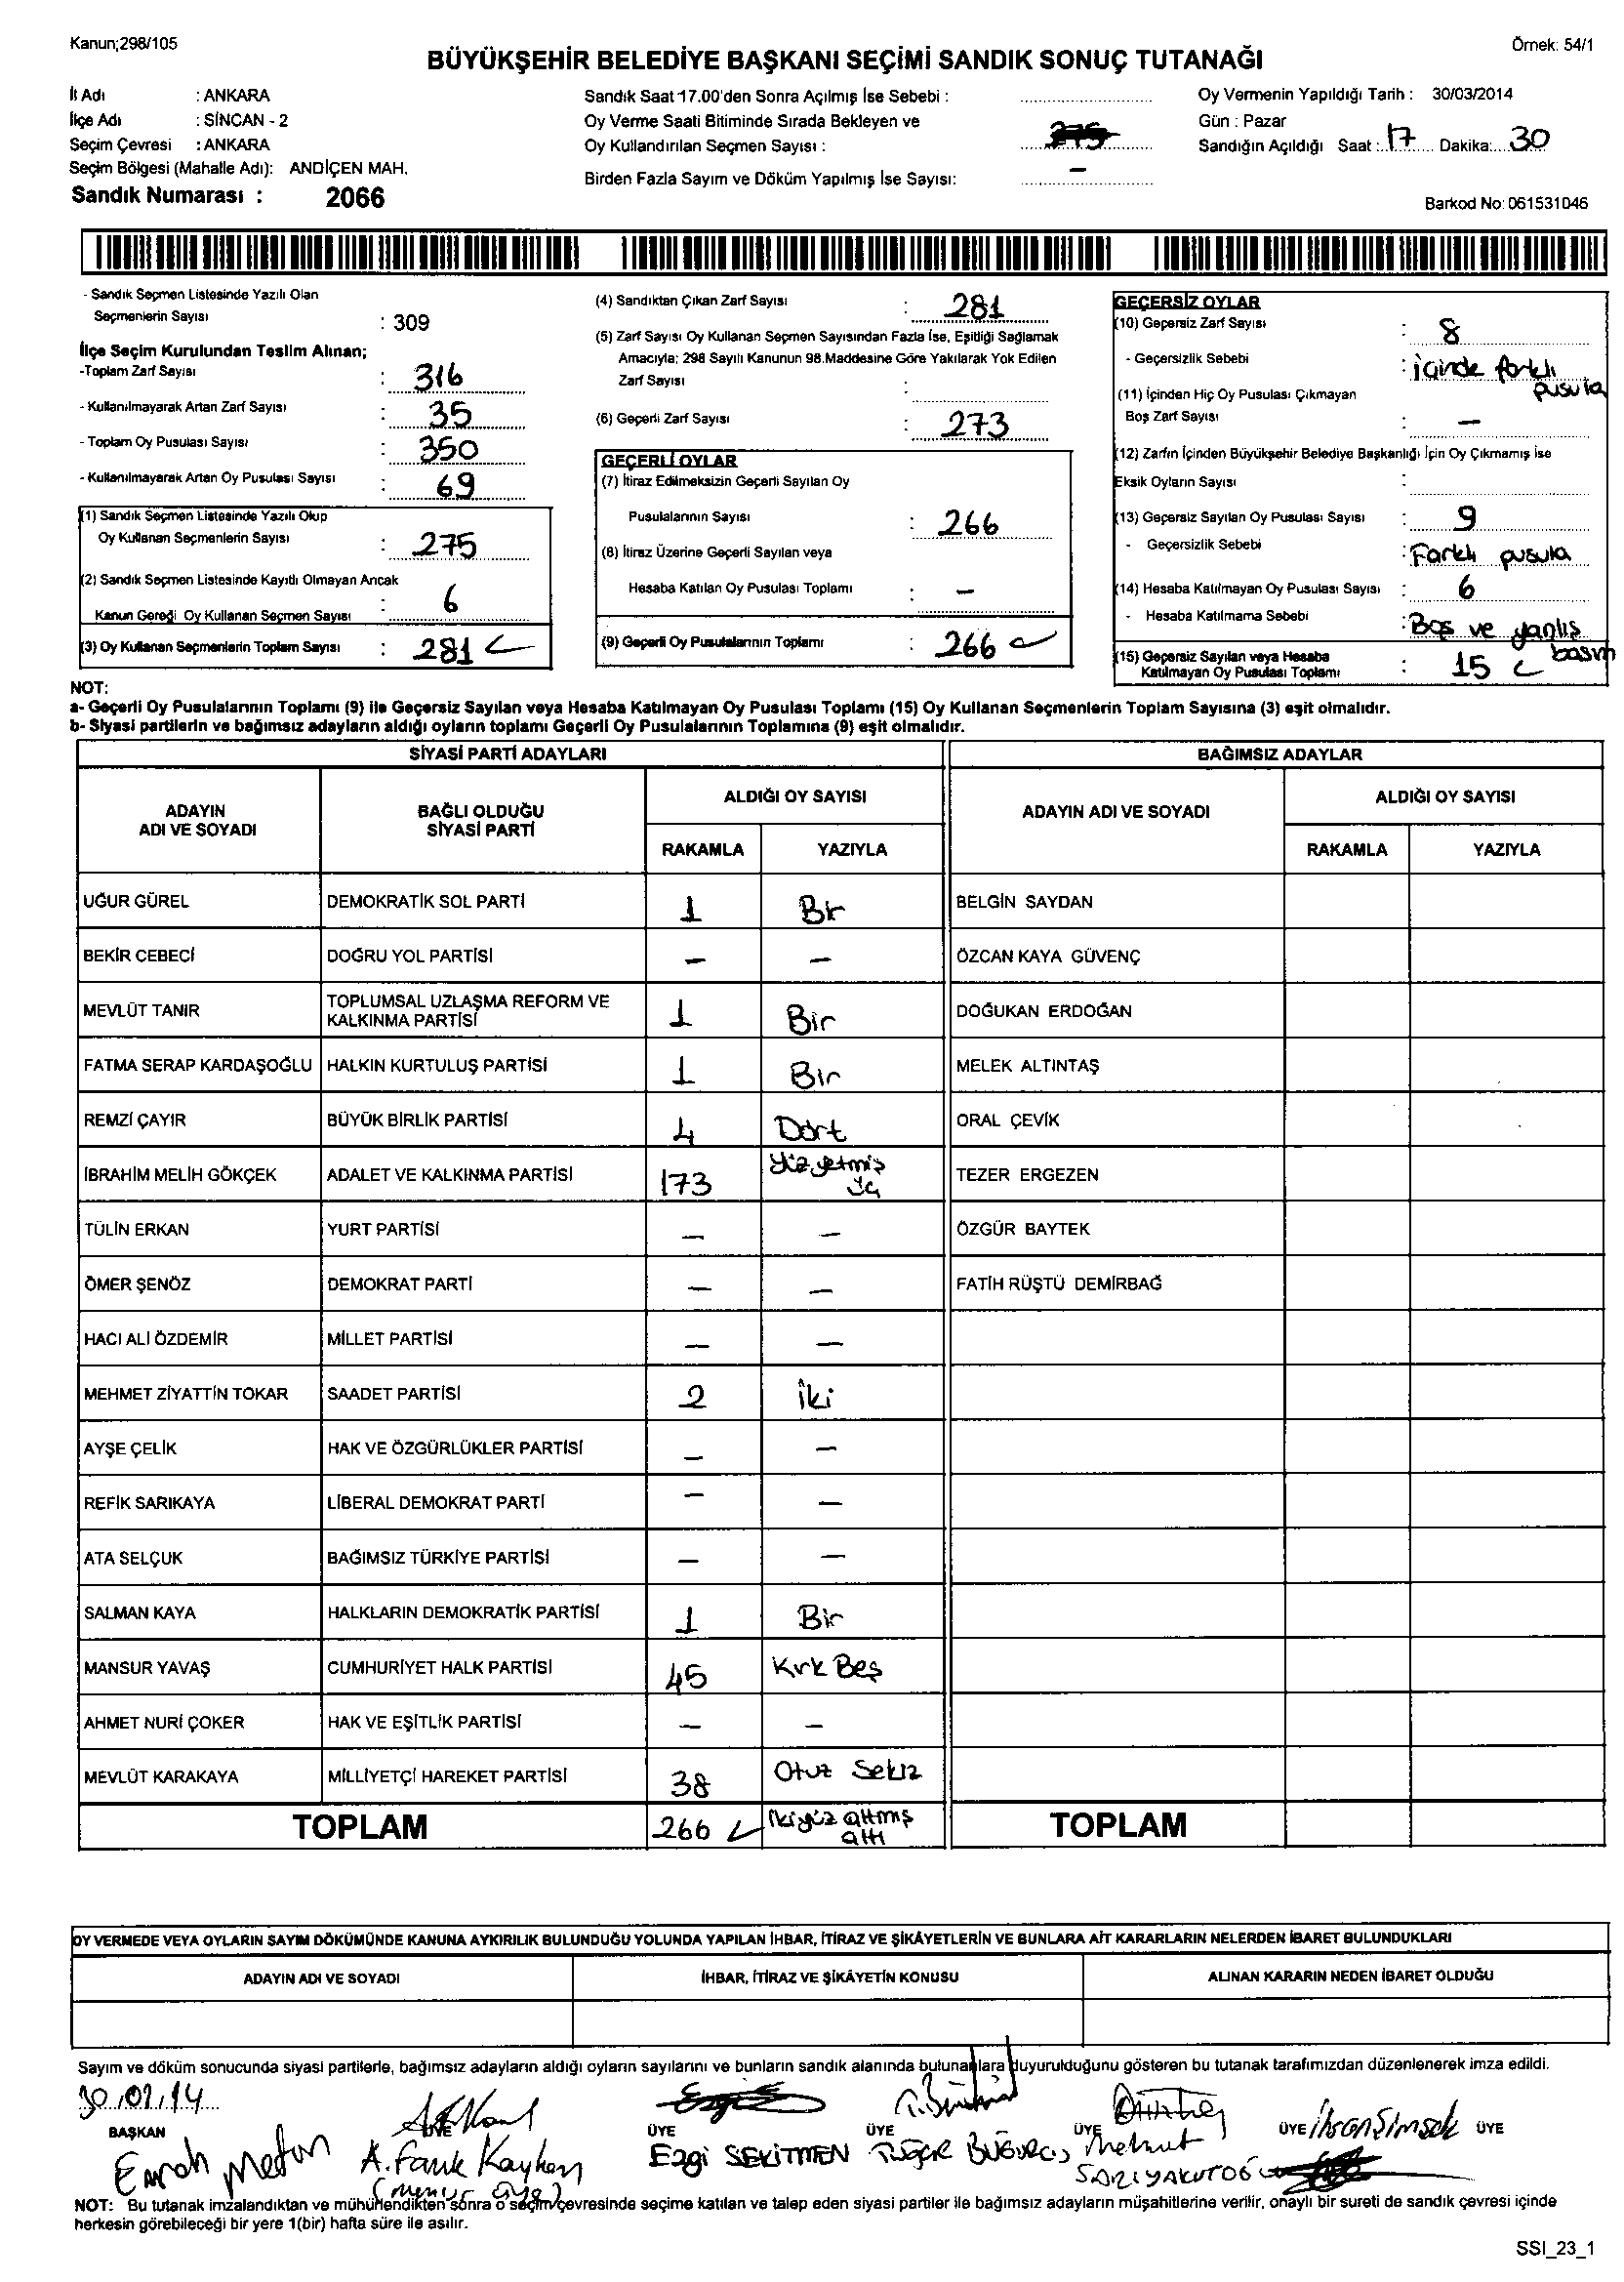 Kanun;298/105
Örnek: 54/1
BÜYÜKŞEHİR BELEDİYE BAŞKANI SEÇİMİ SANDIK SONUÇ TUTANAĞI
İl Adı : ANKARA
İlçe Adı : SİNCAN - 2
Seçim Çevresi : ANKARA
Seçim Bölgesi (Mahalle Adı): ANDİÇEN MAH.
Sandık Numarası : 2066
Sandık Saat 17.00'den Sonra Açılmış İse Sebebi :
Oy Verme Saati Bitiminde Sırada Bekleyen ve
Oy Kullandırılan Seçmen Sayısı :
Birden Fazla Sayım ve Döküm Yapılmış İse Sayısı: –
Oy Vermenin Yapıldığı Tarih : 30/03/2014
Gün : Pazar
Sandığın Açıldığı Saat : 17 Dakika: 30
Barkod No: 061531046
- Sandık Seçmen Listesinde Yazılı Olan
Seçmenlerin Sayısı : 309
İlçe Seçim Kurulundan Teslim Alınan;
-Toplam Zarf Sayısı : 316
- Kullanılmayarak Artan Zarf Sayısı : 35
- Toplam Oy Pusulası Sayısı : 350
- Kullanılmayarak Artan Oy Pusulası Sayısı : 69
(1) Sandık Seçmen Listesinde Yazılı Olup
Oy Kullanan Seçmenlerin Sayısı : 275
(2) Sandık Seçmen Listesinde Kayıtlı Olmayan Ancak
Kanun Gereği Oy Kullanan Seçmen Sayısı : 6
(3) Oy Kullanan Seçmenlerin Toplam Sayısı : 281
(4) Sandıktan Çıkan Zarf Sayısı : 281
(5) Zarf Sayısı Oy Kullanan Seçmen Sayısından Fazla İse, Eşitliği Sağlamak
Amacıyla; 298 Sayılı Kanunun 98.Maddesine Göre Yakılarak Yok Edilen
Zarf Sayısı :
(6) Geçerli Zarf Sayısı : 273
GEÇERLİ OYLAR
(7) İtiraz Edilmeksizin Geçerli Sayılan Oy
Pusulalarının Sayısı : 266
(8) İtiraz Üzerine Geçerli Sayılan veya
Hesaba Katılan Oy Pusulası Toplamı : –
(9) Geçerli Oy Pusulalarının Toplamı : 266
GEÇERSİZ OYLAR
(10) Geçersiz Zarf Sayısı : 8
- Geçersizlik Sebebi : içinde farklı
pusula
(11) İçinden Hiç Oy Pusulası Çıkmayan
Boş Zarf Sayısı : –
(12) Zarfın İçinden Büyükşehir Belediye Başkanlığı İçin Oy Çıkmamış ise
Eksik Oyların Sayısı :
(13) Geçersiz Sayılan Oy Pusulası Sayısı : 9
- Geçersizlik Sebebi : Farklı pusula
(14) Hesaba Katılmayan Oy Pusulası Sayısı : 6
- Hesaba Katılmama Sebebi : Boş ve yanlış
basım
(15) Geçersiz Sayılan veya Hesaba
Katılmayan Oy Pusulası Toplamı : 15
NOT:
a- Geçerli Oy Pusulalarının Toplamı (9) ile Geçersiz Sayılan veya Hesaba Katılmayan Oy Pusulası Toplamı (15) Oy Kullanan Seçmenlerin Toplam Sayısına (3) eşit olmalıdır.
b- Siyasi partilerin ve bağımsız adayların aldığı oyların toplamı Geçerli Oy Pusulalarının Toplamına (9) eşit olmalıdır.
SİYASİ PARTİ ADAYLARI BAĞIMSIZ ADAYLAR
ADAYIN
ADI VE SOYADI
BAĞLI OLDUĞU
SİYASİ PARTİ
ALDIĞI OY SAYISI
RAKAMLA YAZIYLA
ADAYIN ADI VE SOYADI
ALDIĞI OY SAYISI
RAKAMLA YAZIYLA
UĞUR GÜREL DEMOKRATİK SOL PARTİ 1 Bir BELGİN SAYDAN
BEKİR CEBECİ DOĞRU YOL PARTİSİ – – ÖZCAN KAYA GÜVENÇ
MEVLÜT TANIR TOPLUMSAL UZLAŞMA REFORM VE
KALKINMA PARTİSİ 1 Bir DOĞUKAN ERDOĞAN
FATMA SERAP KARDAŞOĞLU HALKIN KURTULUŞ PARTİSİ 1 Bir MELEK ALTINTAŞ
REMZİ ÇAYIR BÜYÜK BİRLİK PARTİSİ 4 Dört ORAL ÇEVİK
İBRAHİM MELİH GÖKÇEK ADALET VE KALKINMA PARTİSİ 173 Yüzyetmiş
üç TEZER ERGEZEN
TÜLİN ERKAN YURT PARTİSİ – – ÖZGÜR BAYTEK
ÖMER ŞENÖZ DEMOKRAT PARTİ – – FATİH RÜŞTÜ DEMİRBAĞ
HACI ALİ ÖZDEMİR MİLLET PARTİSİ – –
MEHMET ZİYATTİN TOKAR SAADET PARTİSİ 2 İki
AYŞE ÇELİK HAK VE ÖZGÜRLÜKLER PARTİSİ – –
REFİK SARIKAYA LİBERAL DEMOKRAT PARTİ – –
ATA SELÇUK BAĞIMSIZ TÜRKİYE PARTİSİ – –
SALMAN KAYA HALKLARIN DEMOKRATİK PARTİSİ 1 Bir
MANSUR YAVAŞ CUMHURİYET HALK PARTİSİ 45 Kırk Beş
AHMET NURİ ÇOKER HAK VE EŞİTLİK PARTİSİ – –
MEVLÜT KARAKAYA MİLLİYETÇİ HAREKET PARTİSİ 38 Otuz Sekiz
TOPLAM 266 İkiyüz altmış
altı TOPLAM
OY VERMEDE VEYA OYLARIN SAYIM DÖKÜMÜNDE KANUNA AYKIRILIK BULUNDUĞU YOLUNDA YAPILAN İHBAR, İTİRAZ VE ŞİKÂYETLERİN VE BUNLARA AİT KARARLARIN NELERDEN İBARET BULUNDUKLARI
ADAYIN ADI VE SOYADI İHBAR, İTİRAZ VE ŞİKÂYETİN KONUSU ALINAN KARARIN NEDEN İBARET OLDUĞU
Sayım ve döküm sonucunda siyasi partilerle, bağımsız adayların aldığı oyların sayılarını ve bunların sandık alanında bulunanlara duyurulduğunu gösteren bu tutanak tarafımızdan düzenlenerek imza edildi.
BAŞKAN ÜYE ÜYE ÜYE ÜYE ÜYE İhsan Şimşek ÜYE
Emrah Metin A. Faruk Ezgi SEKİTMEN Mehmet
NOT: Bu tutanak imzalandıktan ve mühürlendikten sonra o seçim çevresinde seçime katılan ve talep eden siyasi partiler ile bağımsız adayların müşahitlerine verilir, onaylı bir sureti de sandık çevresi içinde
herkesin görebileceği bir yere 1(bir) hafta süre ile asılır.
SSI_23_1